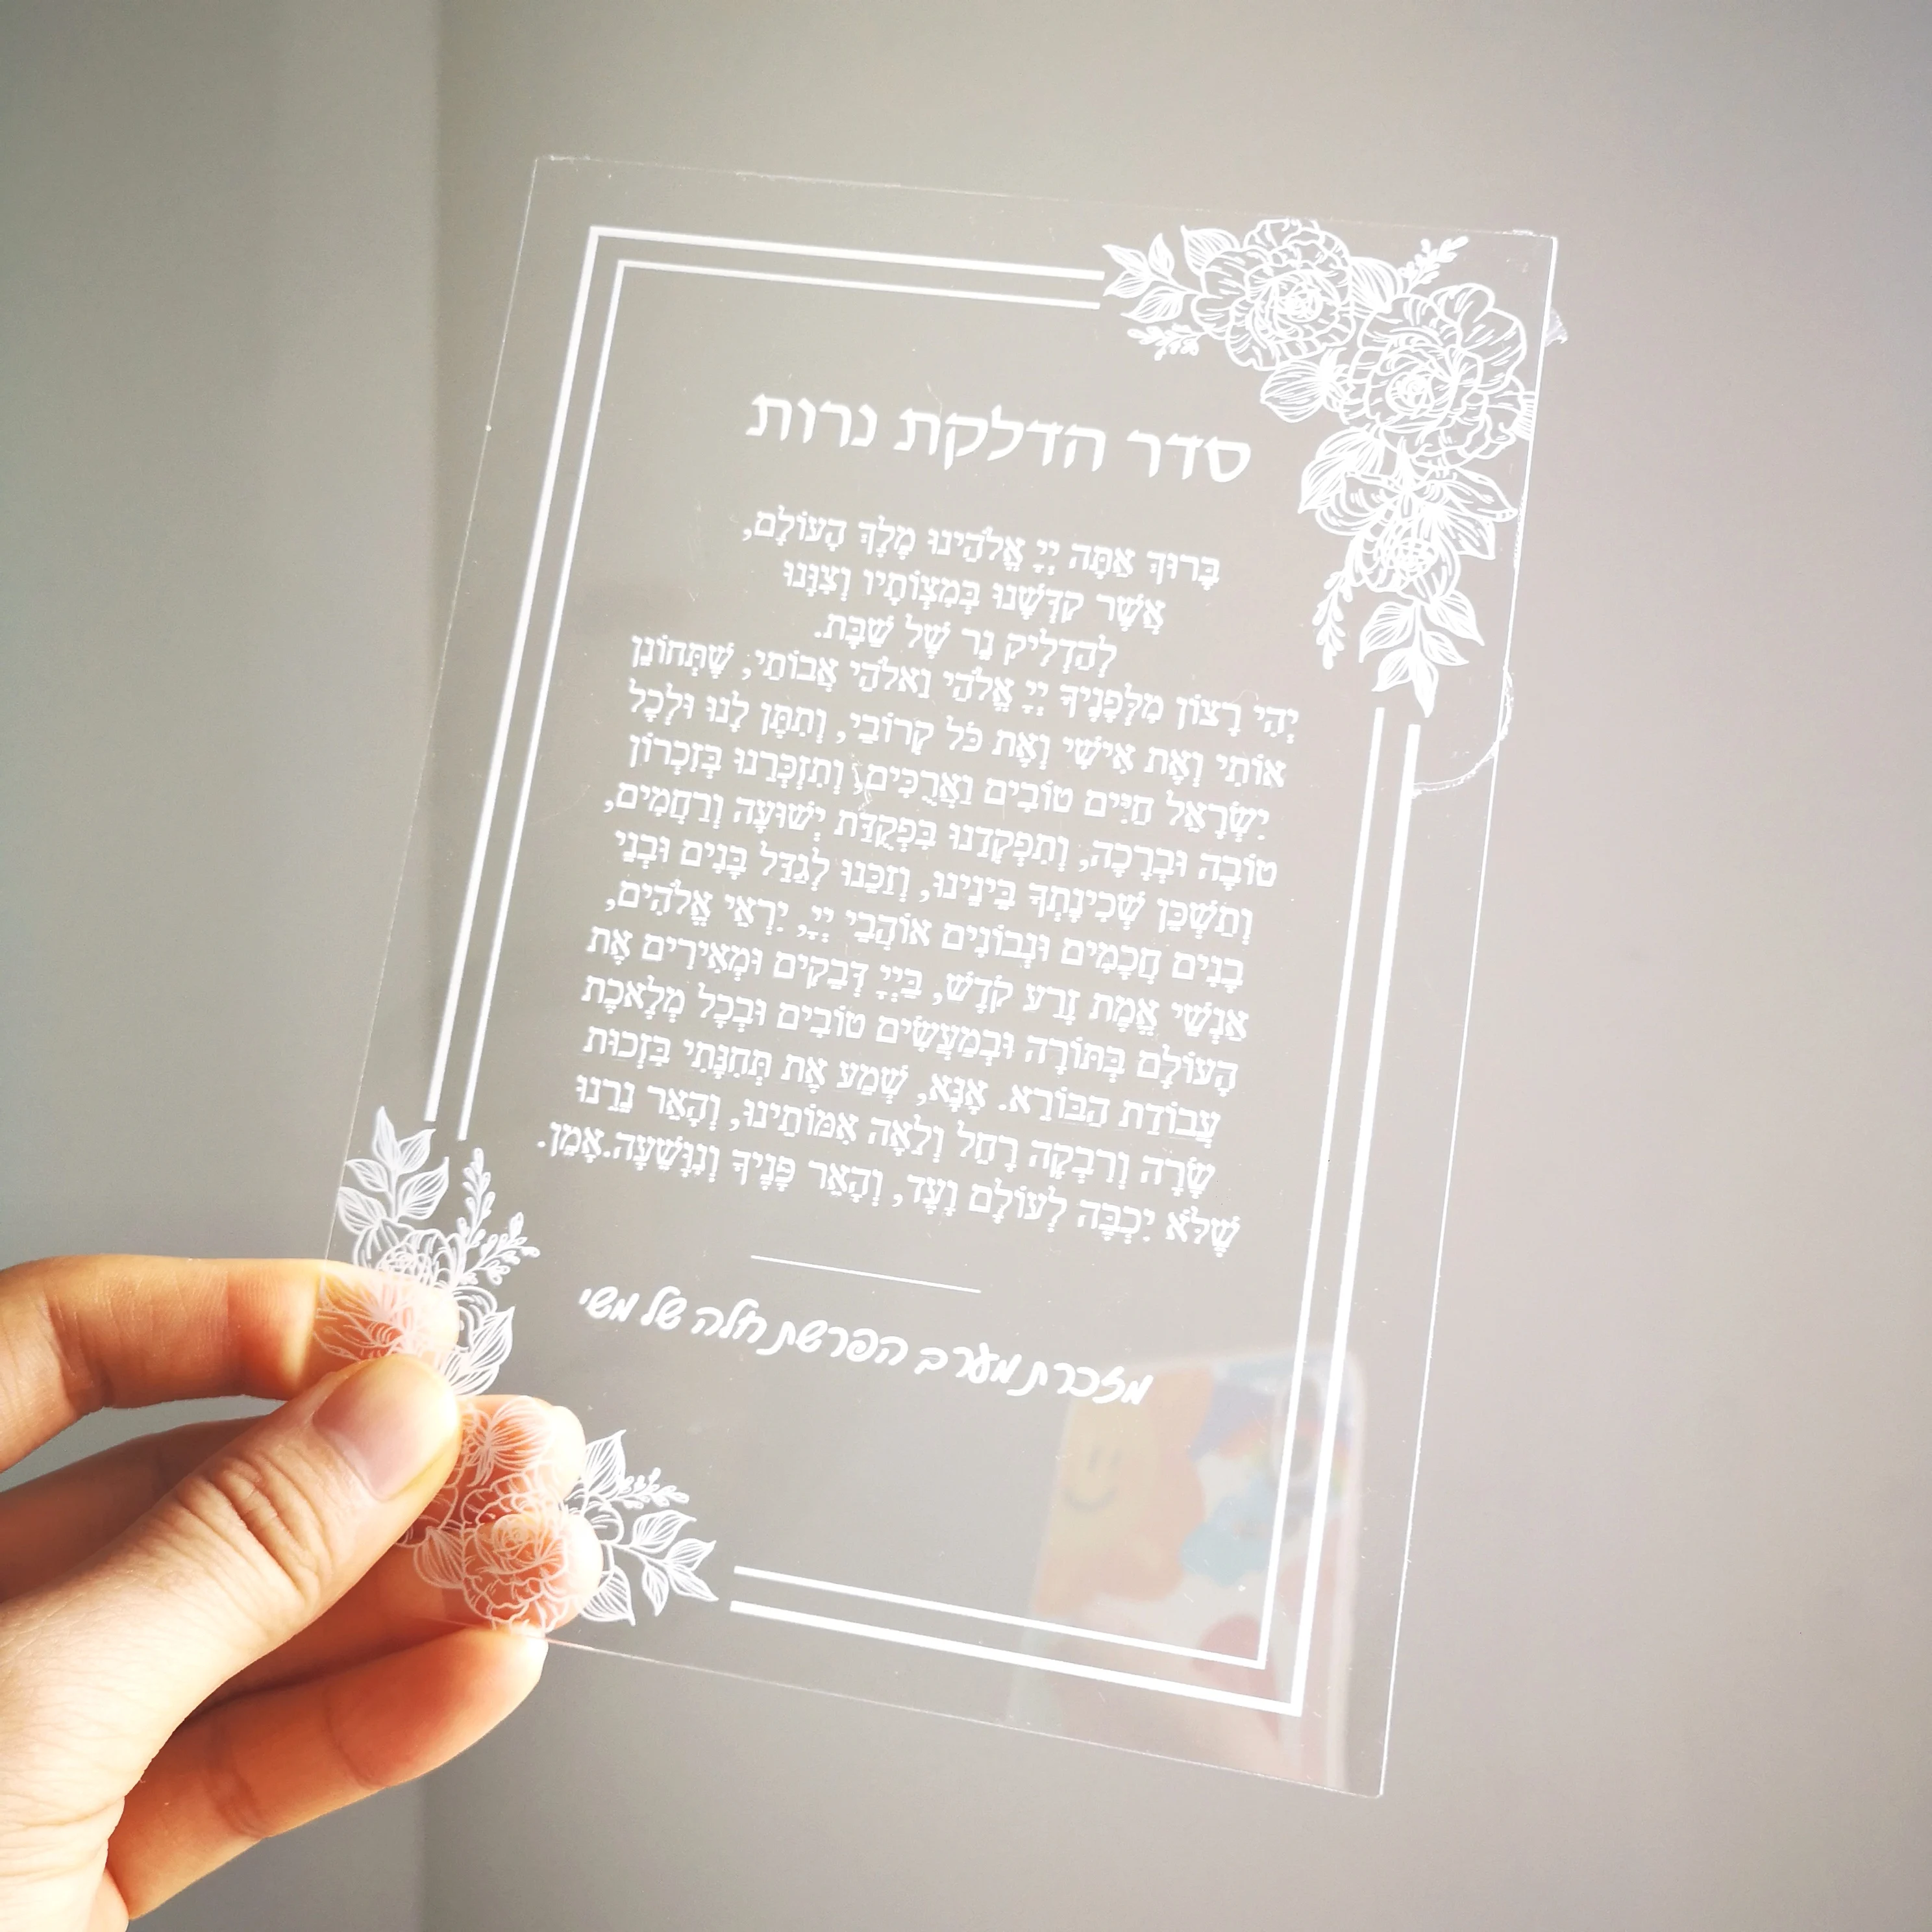 סדר הדלקת נרות
בָּרוּךְ אַתָּה יְיָ אֱלֹהֵינוּ מֶלֶךְ הָעוֹלָם,
אֲשֶׁר קִדְּשָׁנוּ בְּמִצְוֹתָיו וְצִוָּנוּ
לְהַדְלִיק נֵר שֶׁל שַׁבָּת.
יְהִי רָצוֹן מִלְּפָנֶיךָ יְיָ אֱלֹהַי וֵאלֹהֵי אֲבוֹתַי, שֶׁתְּחוֹנֵן
אוֹתִי וְאֶת אִישִׁי וְאֶת כֹּל קְרוֹבַי, וְתִתֵּן לָנוּ וּלְכָל
יִשְׂרָאֵל חַיִּים טוֹבִים וַאֲרֻכִּים, וְתִזְכְּרֵנוּ בְּזִכְרוֹן
טוֹבָה וּבְרָכָה, וְתִפְקְדֵנוּ בִּפְקֻדַּת יְשׁוּעָה וְרַחֲמִים,
וְתַשְׁכֵּן שְׁכִינָתְךָ בֵּינֵינוּ, וְזַכֵּנוּ לְגַדֵּל בָּנִים וּבְנֵי
בָנִים חֲכָמִים וּנְבוֹנִים אוֹהֲבֵי יְיָ, יִרְאֵי אֱלֹהִים,
אַנְשֵׁי אֱמֶת זֶרַע קֹדֶשׁ, בַּיְיָ דְּבֵקִים וּמְאִירִים אֶת
הָעוֹלָם בְּתּוֹרָה וּבְמַעֲשִׂים טוֹבִים וּבְכָל מְלֶאכֶת
עֲבוֹדַת הַבּוֹרֵא. אָנָּא, שְׁמַע אֶת תְּחִנָּתִי בִּזְכוּת
שָׂרָה וְרִבְקָה רָחֵל וְלֵאָה אִמּוֹתֵינוּ, וְהָאֵר נֵרֵנוּ
שֶׁלֹּא יִכְבֶּה לְעוֹלָם וָעֶד, וְהָאֵר פָּנֶיךָ וְנִוָּשֵׁעָה.אָמֵן.
מזכרת מערב הפרשת חלה של משי